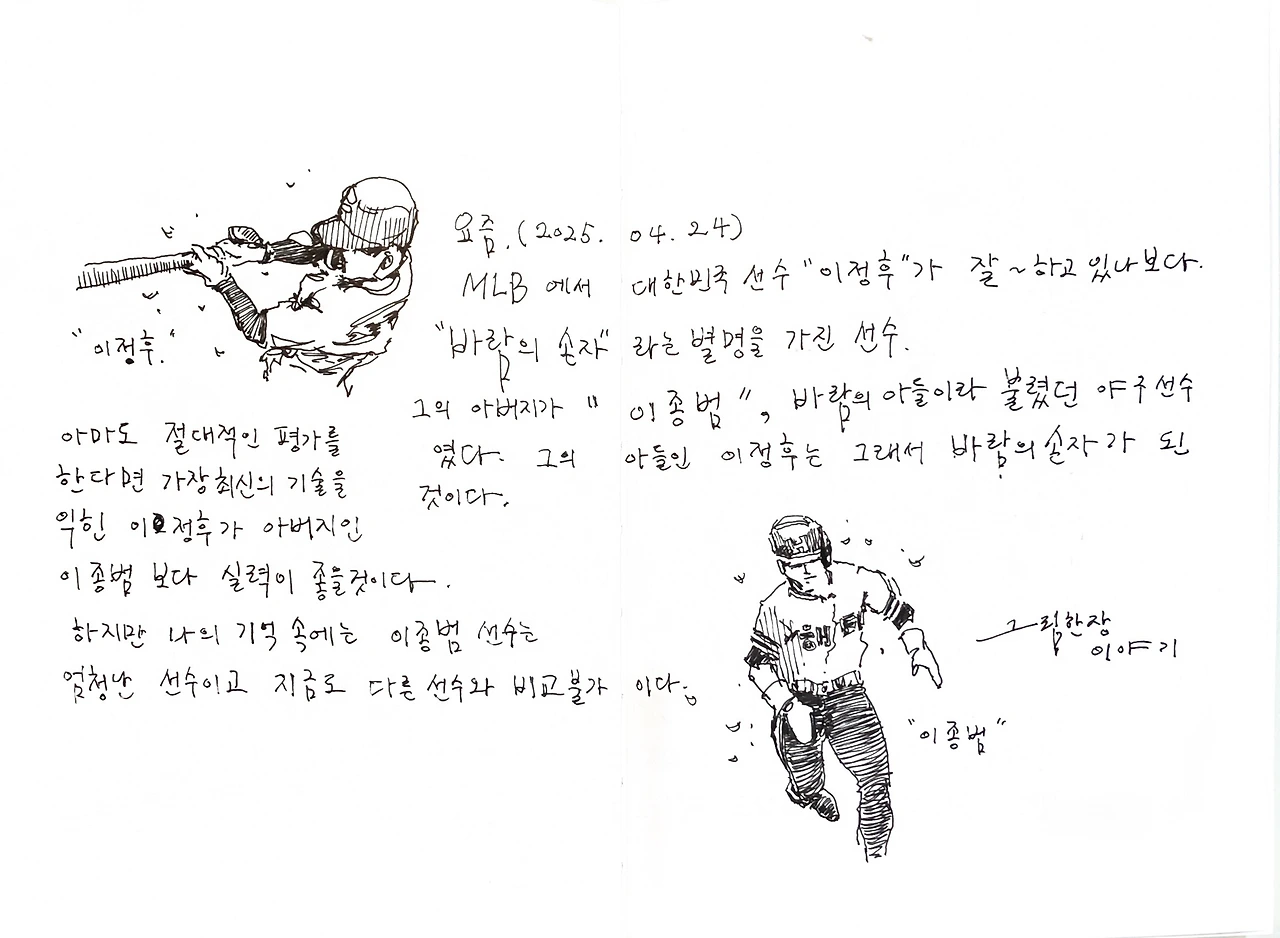 요즘.(2025. 04. 24)
MLB 에서 대한민국 선수 "이정후"가 잘~하고 있나보다.
"바람의 손자" 라는 별명을 가진 선수.
그의 아버지가 "이종범", 바람의 아들이라 불렸던 야구선수
였다. 그의 아들인 이정후는 그래서 바람의손자가 된
것이다.
"이정후."
아마도 절대적인 평가를
한다면 가장최신의 기술을
익힌 이정후가 아버지인
이종범 보다 실력이 좋을것이다.
하지만 나의 기억 속에는 이종범 선수는
엄청난 선수이고 지금도 다른선수와 비교불가 이다.
해태
그림한장
이야기
"이종범"